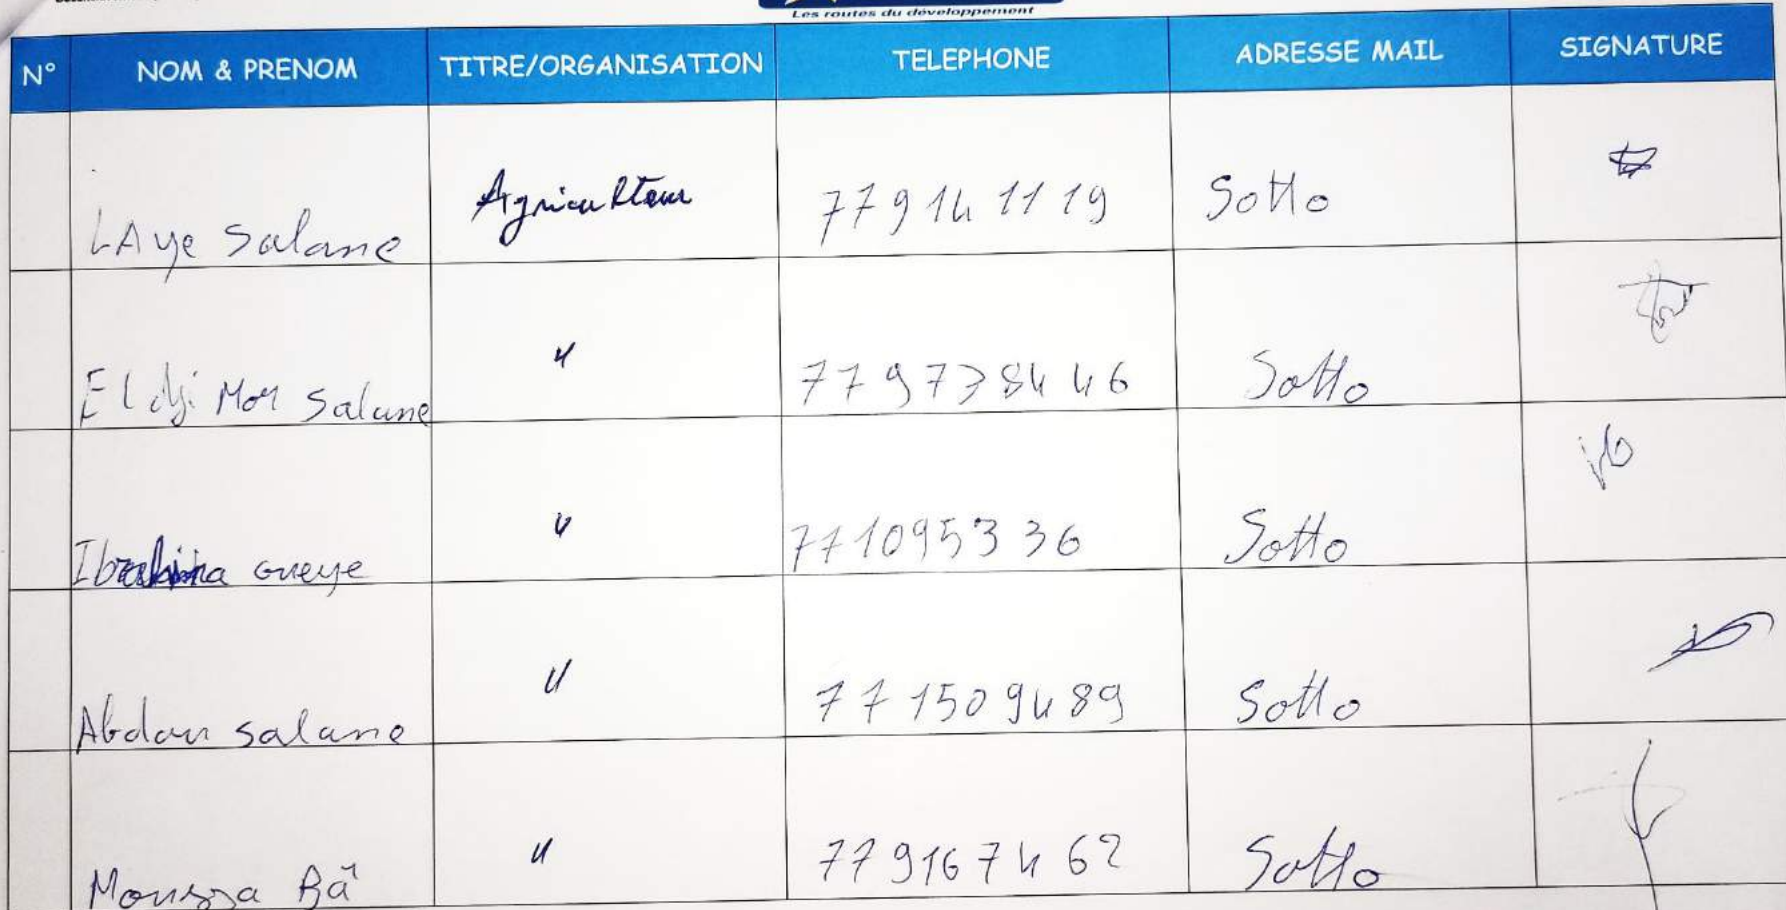 Les routes du développement
N° NOM & PRENOM TITRE/ORGANISATION TELEPHONE ADRESSE MAIL SIGNATURE
LAye Salane Agriculteur 77 914 11 19 Sotto
El dji Mor Salane " 77 973 84 46 Sotto
Ibrahima Gueye " 77 109 53 36 Sotto
Abdou Salane " 77 150 94 89 Sotto
Moussa Bâ " 77 916 74 62 Sotto